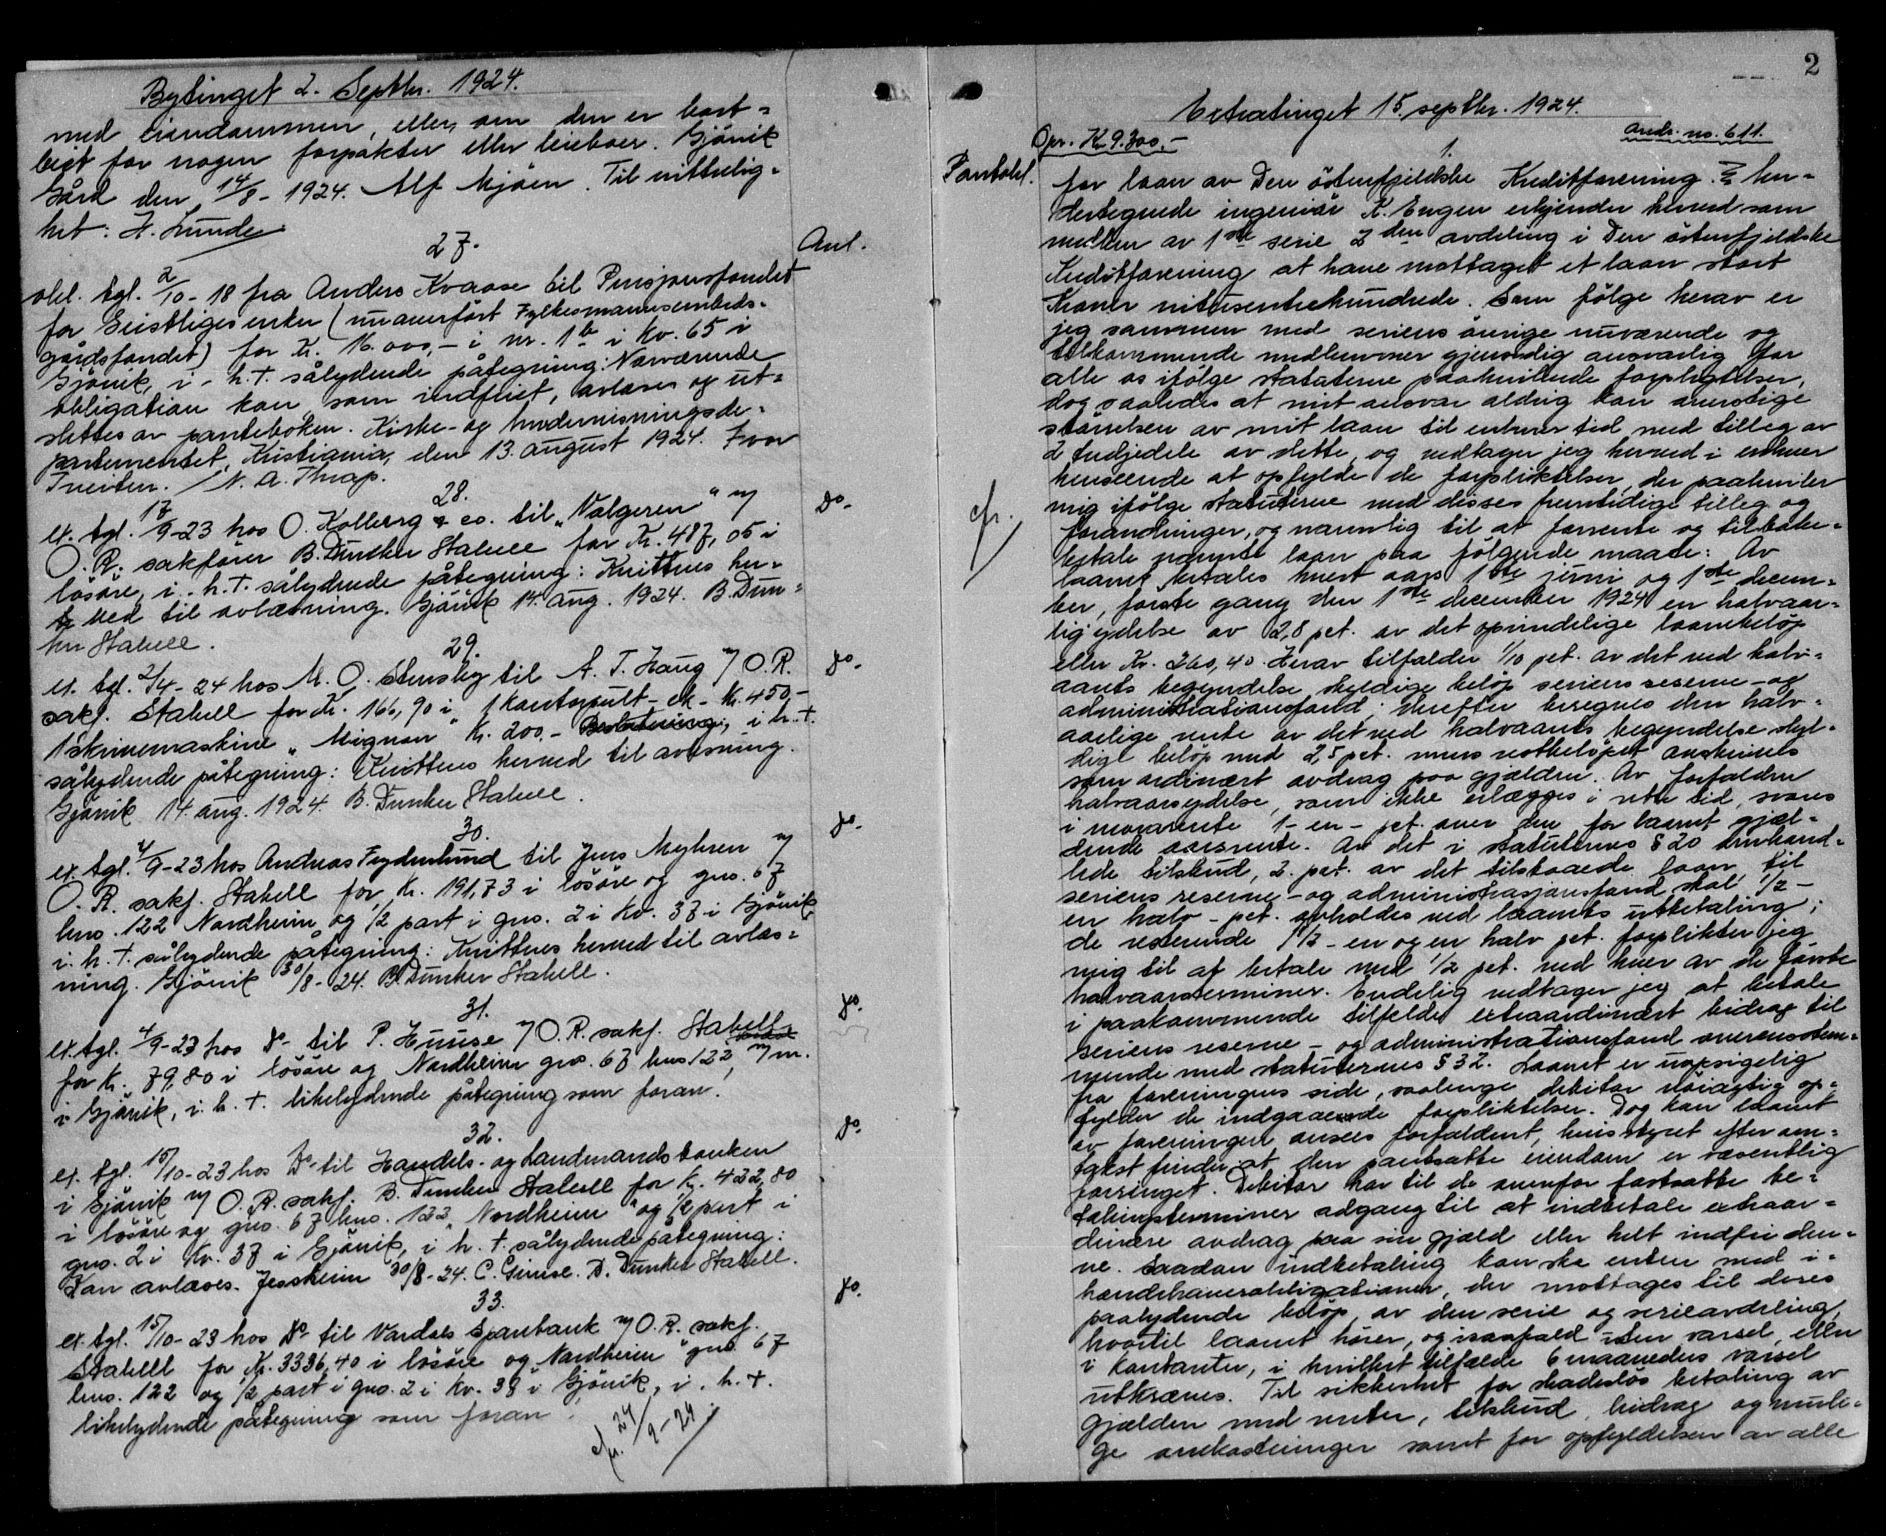 Bytinget 2. Septbr. 1924.
med eiendommen, eller om den er bort-
leiet for nogen forpakter eller leieboer. Gjövik
Gård den 14/8 - 1924. Alf Mjöen. Til vitterlig-
het: H. Lunde
27.
Avl.
obl. tgl. 2/10-18 fra Anders Kvaase til Pensjonsfondet
for Geistliges enker (nu overfört Fylkesmannsembeds-
gårdsfondet) for Kr. 16.000,- i nr. 1b i Kv. 65 i
Gjövik, i. h. t. sålydende påtegning: Nærværende
obligation kan som indfriet, avlæses og ut-
slettes av panteboken. Kirke- og Undervisningsde-
partementet, Kristiania, den 13. august 1924. Ivar
Tveiten. / N. A. Thrap.
28.
do-
ex. tgl. 17/9-23 hos O. Kolberg & co. til "Valgeren" v/
O. R. sakförer B. Dunker Stabell for Kr. 487,05 i
lösöre, i. h. t. sålydende påtegning: Kvitteres her-
ved til avlæsning. Gjövik 14. aug. 1924. B. Dun-
ker Stabell.
29.
do-
ex. tgl. 2/4-24 hos M. O. Stenslög til A. T. Haug v/ O. R.
sakf. Stabell for Kr. 166,90 i 1 kontorpult - ek - Kr. 450,-
1 skrivemaskine "Mignon" Kr. 200.- i h. t.
sålydende påtegning: Kvitteres herved til avlæsning.
Gjövik 14. aug. 1924. B. Dunker Stabell.
30.
do-
ex. tgl. 4/9-23 hos Andreas Frydenlund til Jens Myhren v/
O. R. sakf. Stabell for Kr. 191,73 i lösöre og gno. 67
bno. 122 Nordheim og 1/2 part i gno. 2 i Kv. 37 i Gjövik
i. h. t. sålydende påtegning: Kvitteres herved til avlæs-
ning. Gjövik 30/8-24. B. Dunker Stabell.
31.
do-
ex. tgl. 4/9-23 hos Do- til P. Huuse v/ O. R. sakf. Stabell
for Kr. 79,80 i lösöre og Nordheim gno. 67 bno 122, m. m.
i Gjövik, i. h. t. likelydende påtegning som foran.
32.
do-
ex. tgl. 15/10-23 hos Do- til Handels- og Landmandsbanken
i Gjövik v/ O. R. sakf. B. Dunker Stabell for Kr. 432,80
i lösöre og gno. 67 bno. 122 "Nordheim" og 1/2 part i
gno. 2 i Kv. 37 i Gjövik, i h. t. sålydende påtegning:
Kan avlæses. Jessheim 30/8-24. C. Gruse. B. Dunker Stabell.
33.
do-
ex. tgl. 15/10-23 hos Do- til Vardals Sparebank v/ O. R. sakf.
Stabell for Kr. 3336,40 i lösöre og Nordheim gno. 67
bno. 122 og 1/2 part i gno. 2 i Kv. 37 i Gjövik, i. h. t.
likelydende påtegning som foran.
cfr. 24/9-24
2
Extratinget 15. septbr. 1924.
Opr. Kr 9.300,-
Andr. no. 611.
1.
Pantobl. for laan av Den östenfjeldske Kreditforening. Un-
dertegnede ingeniör K. Engen erkjender herved som
medlem av 1ste serie 2den avdeling i Den östenfjeldske
Kreditforening at have mottaget et laan stort
Kroner nitusentrehundrede. Som fölge herav er
jeg sammen med seriens övrige nuværende og
tilkommende medlemmer gjensidig ansvarlig for
alle os ifölge statuterne paahvilende forpligtelser,
dog saaledes at mit ansvar aldrig kan overstige
störrelsen av mit laan til enhver tid med tillæg av
2 tredjedele av dette, og vedtager jeg herved i enhver
henseende at opfylde de forpliktelser, der paahviler
mig ifölge statuterne med disses fremtidige tillæg og
cfr. forandringer, og navnlig til at forrente og tilbake-
betale nævnte laan paa fölgende maate: Av
laanet betales hvert aars 1ste juni og 1ste decem-
ber, förste gang den 1ste december 1924 en halvaar-
lig ydelse av 2,8 pct. av det oprindelige laanebelöp
eller Kr. 260,40. Herav tilfalder 1/10 pct. av det ved halv-
aarets begyndelse skyldige belöp seriens reserve- og
administrationsfond: derefter beregnes den halv-
aarlige rente av det ved halvaarets begyndelse skyl-
dige belöp med 2 5 pct. mens restbelöpet avskrives
som ordinært avdrag paa gjælden. Av forfalden
halvaarsydelse, som ikke erlægges i rette tid, svares
i morarente 1 - en - pct. over den for laanet gjæl-
dende aarsrente. Av det i statuternes § 20 omhand-
lede tilskud, 2. pct. av det tilstaaede laan, til
seriens reserve- og administrasjonsfond skal 1/2 -
en halv - pct. avholdes ved laanets utbetaling;
de resterende 1 1/2 - en og en halv pct. forplikter jeg
mig til at betale med 1/2 pct. ved hver av de förste
halvaarsterminer. Endelig vedtager jeg at betale
i paakommende tilfelde extraordinært bidrag til
seriens reserve- og administrationsfond overensstem-
mende med statuternes § 32. Laanet er uopsigelig
fra foreningens side, saalænge debitor nöiagtig op-
fylder de indgaaende forpliktelser. Dog kan laanet
av foreningen ansees forfaldent, hvis styret efter om-
takst finder at den pantsatte eiendom er væsentlig
forringet. Debitor har til de ovenfor fastsatte be-
talingsterminer adgang til at indbetale extraor-
dinære avdrag paa sin gjæld eller helt indfrie den-
ne. Saadan indbetaling kan ske enten med i-
hændehaverobligationer, der mottages til deres
paalydende belöp, av den serie og serieavdeling,
hvortil laanet hörer, og isaafald uten varsel, eller
i kontanter, i hvilket tilfælde 6 maaneders varsel
utkræves. Til sikkerhet for skadeslös betaling av
gjælden med renter, tilskud, bidrag og muli-
ge omkostninger samt for opfyldelsen av alle